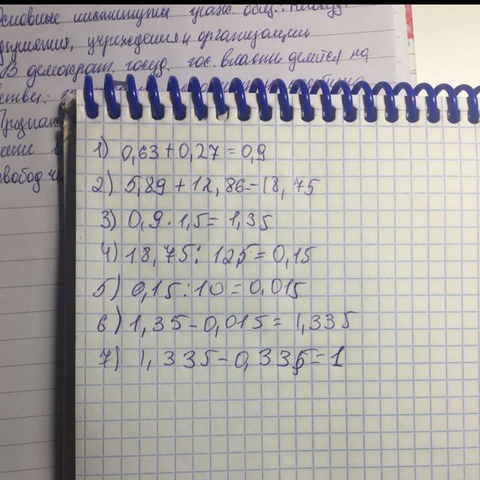 Основные институты граж. общ.:
учреждения и организации
В демократ. госуд. гос. власти делится на
1) 0,63+0,27=0,9
2) 5,89+12,86=18,75
3) 0,9·1,5=1,35
4) 18,75:125=0,15
5) 0,15:10=0,015
6) 1,35-0,015=1,335
7) 1,335-0,335=1